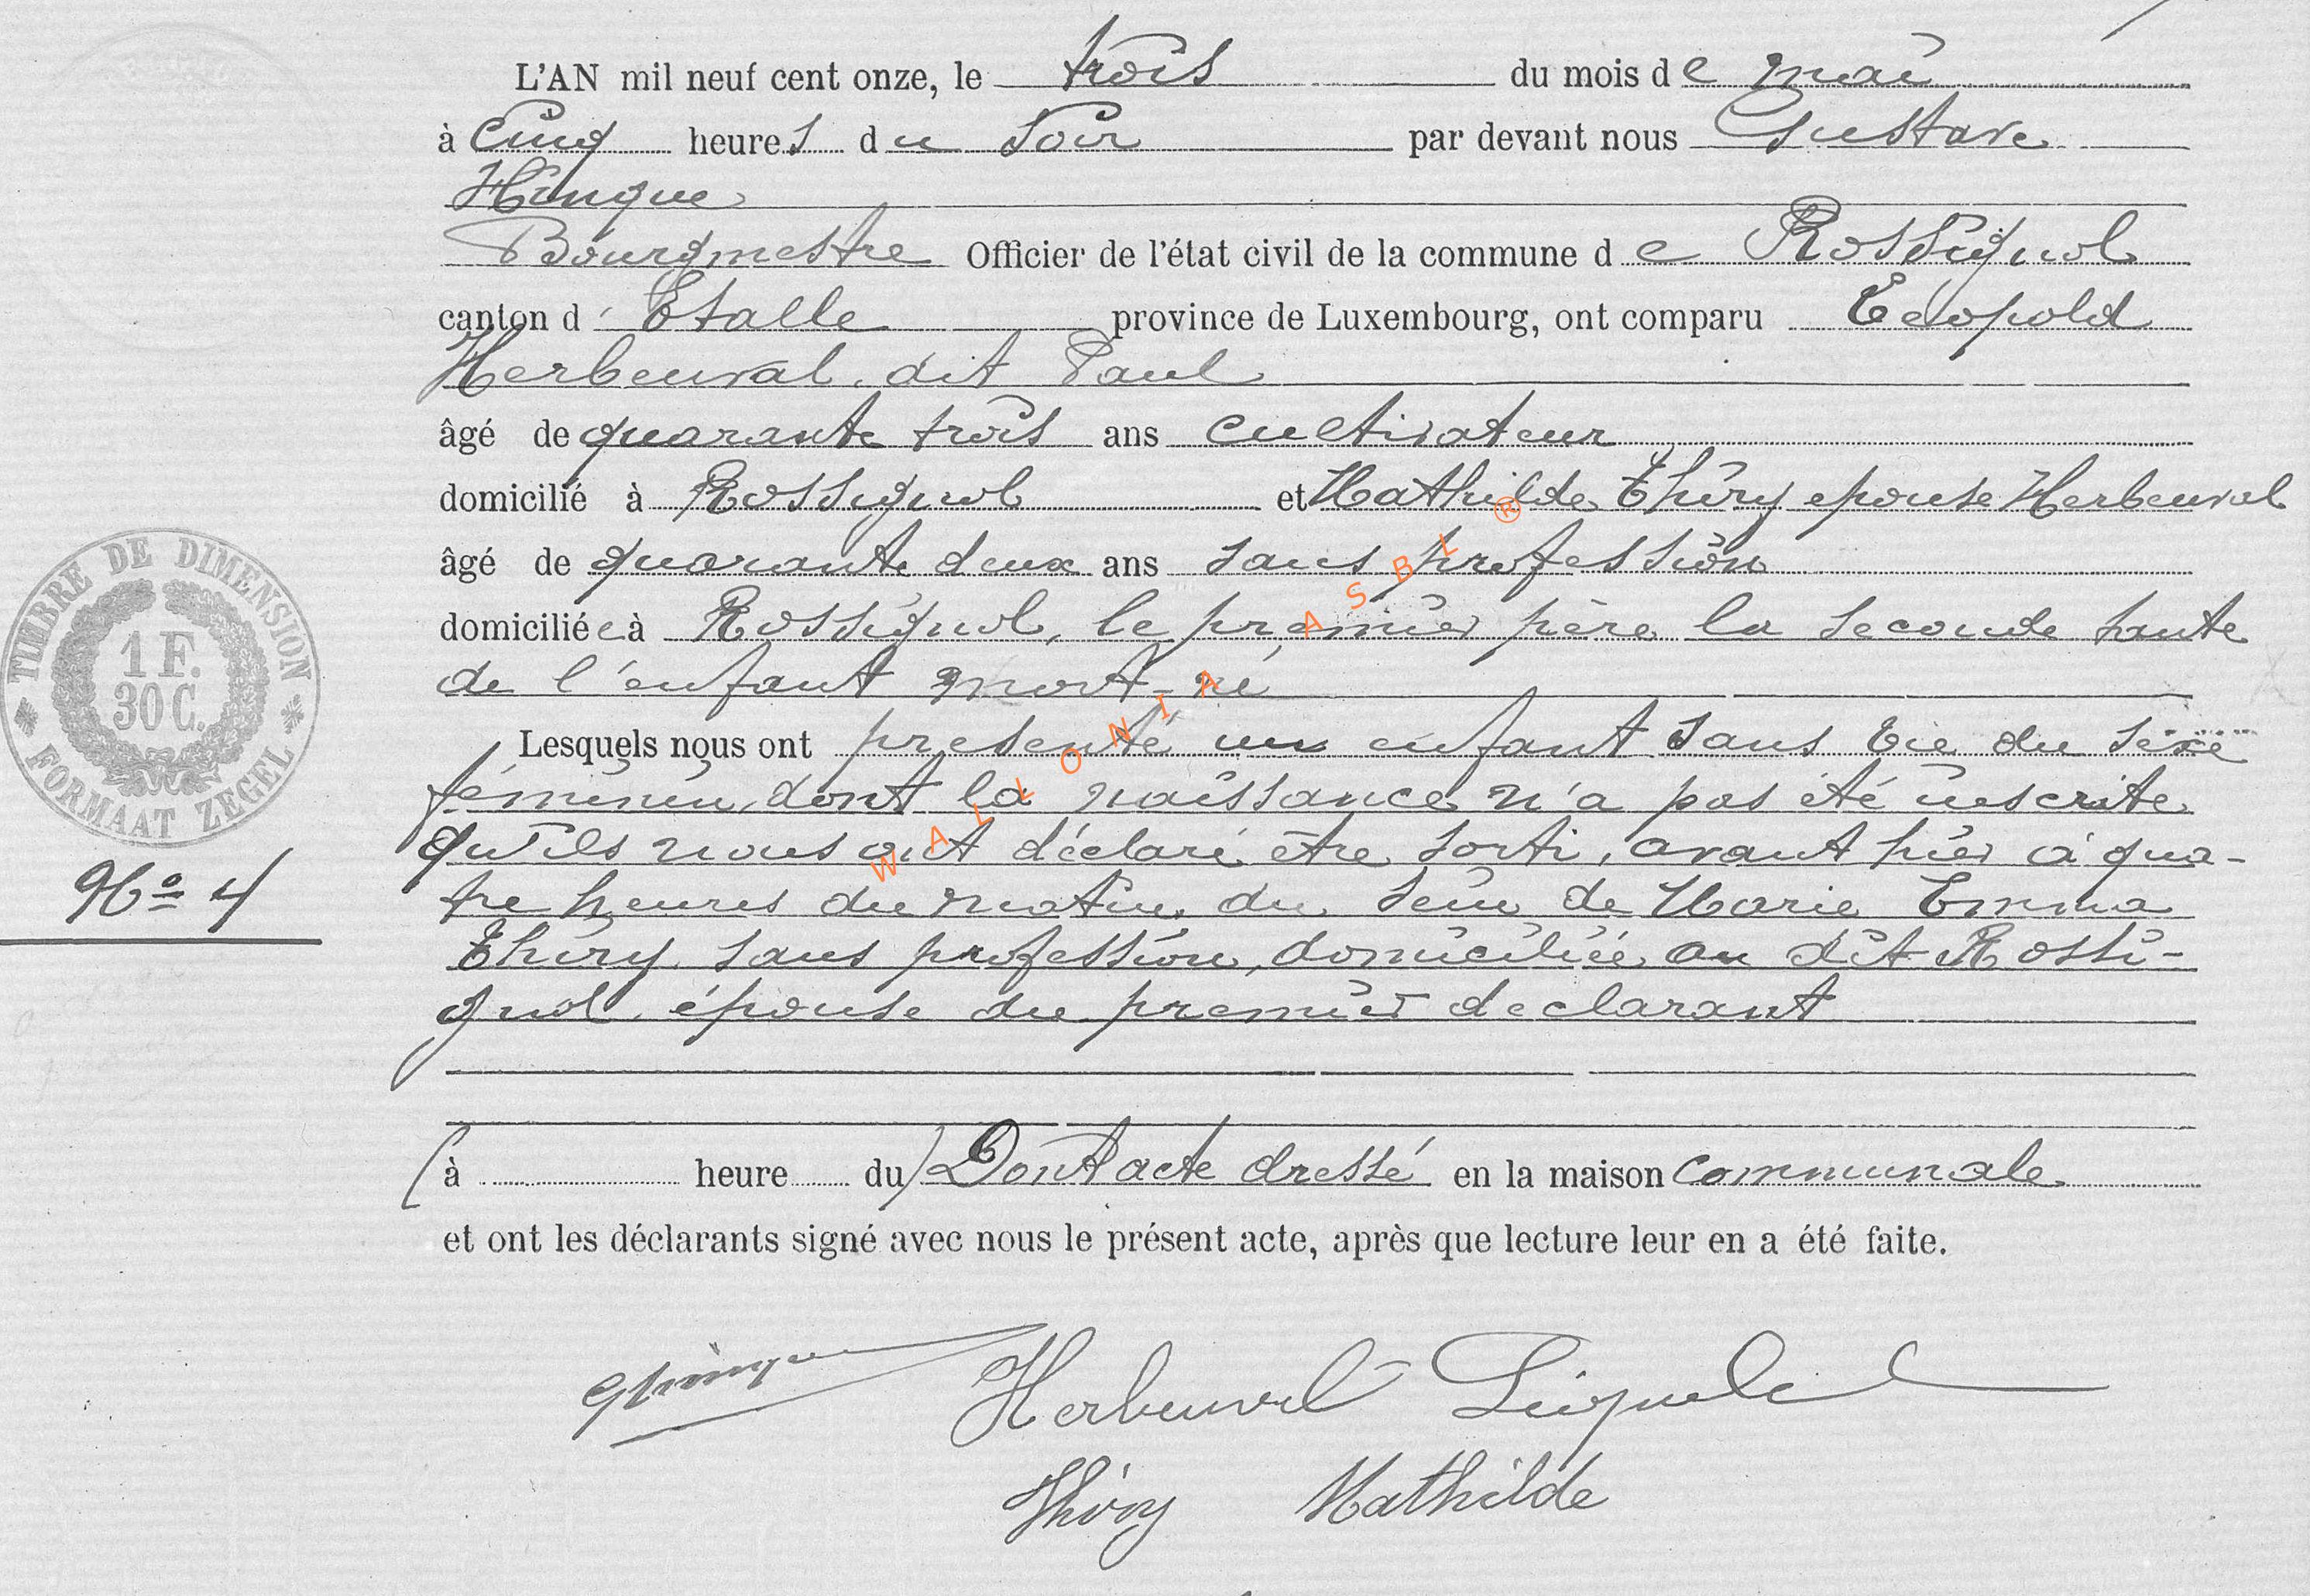 L'AN mil neuf cent onze, le trois du mois de mai
à Cinq heures du Soir par devant nous Gustave
Hinque
Bourgmestre Officier de l'état civil de la commune de Rossignol
canton d'Etalle province de Luxembourg, ont comparu Léopold
Herbeuval dit Paul
âgé de quarante trois ans cultivateur
domicilié à Rossignol et Mathilde Thiry epouse Herbeuval
âgé de quarante deux ans sans profession
domiciliée à Rossignol, le premier père la seconde tante
de l'enfant mort-né
Lesquels nous ont presenté un enfant sans vie du sexe
féminin, dont la naissance n'a pas été inscrite
qu'ils nous ont déclaré être sorti, avant hier à qua-
tre heures du matin du sein de Marie Emma
Thiry sans profession, domiciliée au dit Rossi-
gnol épouse du premier declarant
(à heure du) Dont acte dressé en la maison communale
et ont les déclarants signé avec nous le présent acte, après que lecture leur en a été faite.
Herbeuval
Thiry Mathilde
TIMBRE DE DIMENSION
1 F.
30 C.
FORMAAT ZEGEL
No 4
WALLONIA ASBL ®